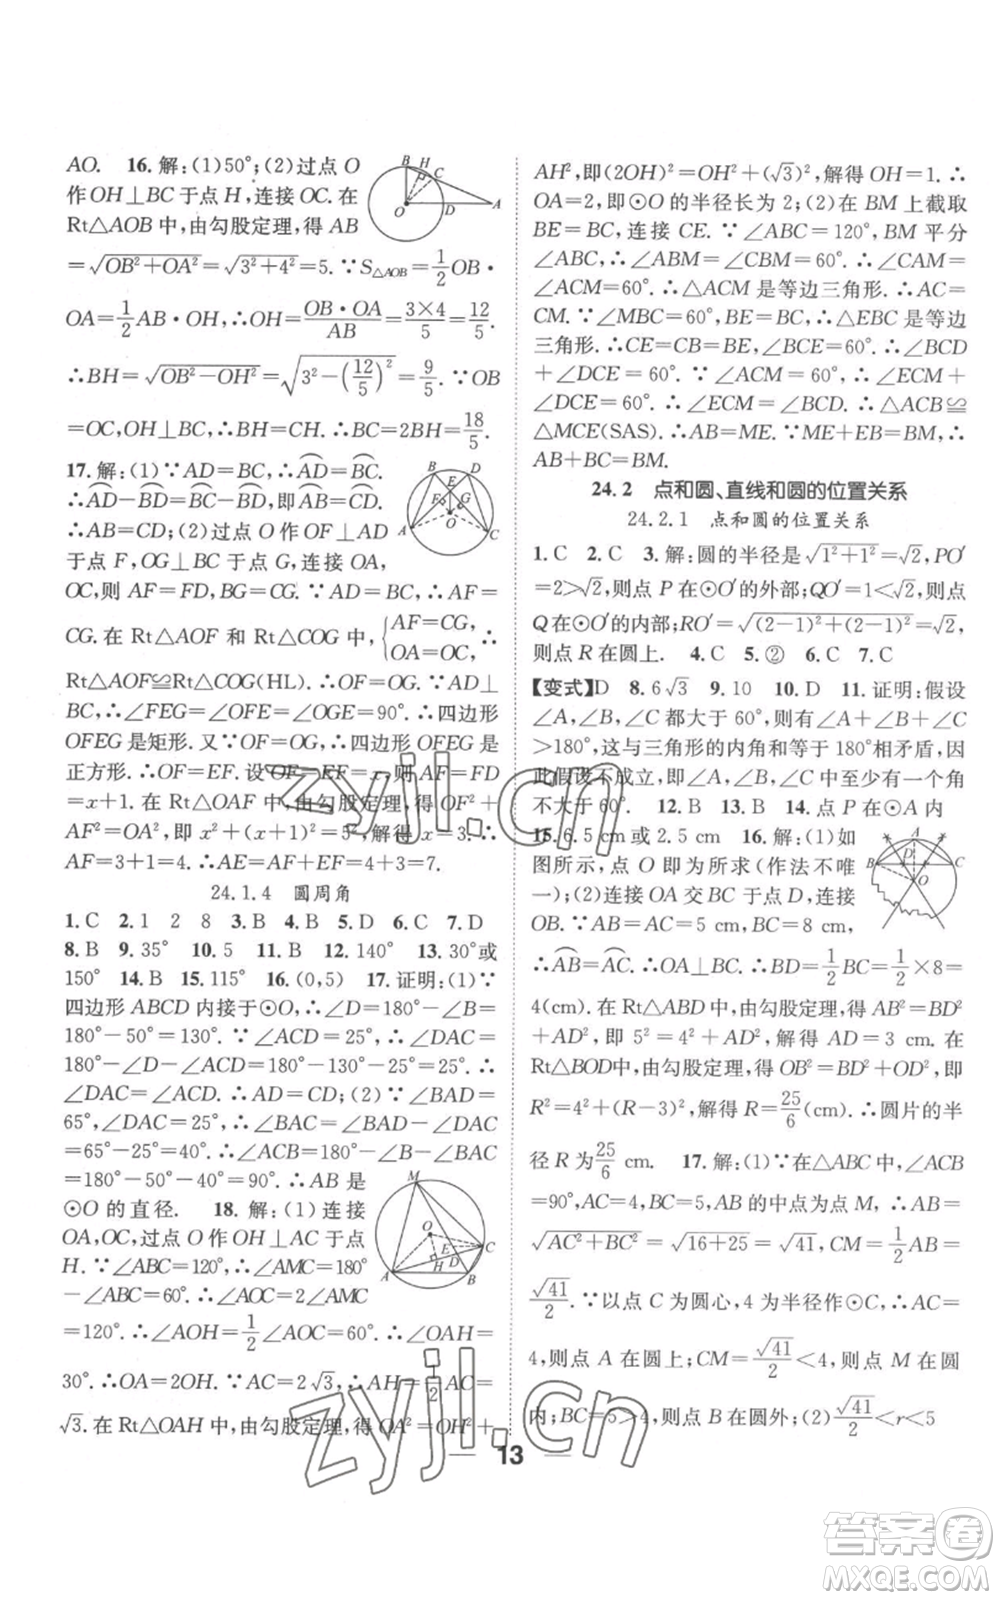 AO. 16. 解:(1)50°;(2)过点 O
作 OH⊥BC 于点 H,连接 OC. 在
Rt△AOB 中,由勾股定理,得 AB
=√(OB²+OA²)=√(3²+4²)=5. ∵S△AOB=1/2 OB·
OA=1/2 AB·OH,∴OH=(OB·OA)/AB=(3×4)/5=12/5.
∴BH=√(OB²-OH²)=√(3²-(12/5)²)=9/5. ∵OB
=OC,OH⊥BC,∴BH=CH. ∴BC=2BH=18/5.
17. 解:(1)∵AD=BC,∴⌒AD=⌒BC.
∴⌒AD-⌒BD=⌒BC-⌒BD,即⌒AB=⌒CD.
∴AB=CD;(2)过点 O 作 OF⊥AD
于点 F,OG⊥BC 于点 G,连接 OA,
OC,则 AF=FD,BG=CG. ∵AD=BC,∴AF=
CG. 在 Rt△AOF 和 Rt△COG 中,{AF=CG, OA=OC, ∴
Rt△AOF≌Rt△COG(HL). ∴OF=OG. ∵AD⊥
BC,∴∠FEG=∠OFE=∠OGE=90°. ∴四边形
OFEG 是矩形. 又∵OF=OG,∴四边形 OFEG 是
正方形. ∴OF=EF. 设 OF=EF=x,则 AF=FD
=x+1. 在 Rt△OAF 中,由勾股定理,得 OF²+
AF²=OA²,即 x²+(x+1)²=5²,解得 x=3. ∴
AF=3+1=4. ∴AE=AF+EF=4+3=7.
24.1.4 圆周角
1. C 2. 1 2 8 3. B 4. B 5. D 6. C 7. D
8. B 9. 35° 10. 5 11. B 12. 140° 13. 30°或
150° 14. B 15. 115° 16. (0,5) 17. 证明:(1)∵
四边形 ABCD 内接于⊙O,∴∠D=180°-∠B=
180°-50°=130°. ∵∠ACD=25°,∴∠DAC=
180°-∠D-∠ACD=180°-130°-25°=25°.
∴∠DAC=∠ACD. ∴AD=CD;(2)∵∠BAD=
65°,∠DAC=25°,∴∠BAC=∠BAD-∠DAC=
65°-25°=40°. ∴∠ACB=180°-∠B-∠BAC=
180°-50°-40°=90°. ∴AB 是
⊙O 的直径. 18. 解:(1)连接
OA,OC,过点 O 作 OH⊥AC 于点
H. ∵∠ABC=120°,∴∠AMC=180°
-∠ABC=60°. ∴∠AOC=2∠AMC
=120°. ∴∠AOH=1/2∠AOC=60°. ∴∠OAH=
30°. ∴OA=2OH. ∵AC=2√3,∴AH=1/2AC=
√3. 在 Rt△OAH 中,由勾股定理,得 OA²=OH²+
AH²,即(2OH)²=OH²+(√3)²,解得 OH=1. ∴
OA=2,即⊙O 的半径长为 2;(2)在 BM 上截取
BE=BC,连接 CE. ∵∠ABC=120°,BM 平分
∠ABC,∴∠ABM=∠CBM=60°. ∴∠CAM=
∠CBM=60°. ∴△ACM 是等边三角形. ∴AC=
CM. ∵∠MBC=60°,BE=BC,∴△EBC 是等边
三角形. ∴CE=CB=BE,∠BCE=60°. ∴∠BCD
+∠DCE=60°. ∵∠ACM=60°,∴∠ECM+
∠DCE=60°. ∴∠ECM=∠BCD. ∴△ACB≌
△MCE(SAS). ∴AB=ME. ∵ME+EB=BM,∴
AB+BC=BM.
24.2 点和圆、直线和圆的位置关系
24.2.1 点和圆的位置关系
1. C 2. C 3. 解:圆的半径是√(1²+1²)=√2,PO′
=2>√2,则点 P 在⊙O′的外部;QO′=1<√2,则点
Q 在⊙O′的内部;RO′=√((2-1)²+(2-1)²)=√2,
则点 R 在圆上. 4. C 5. ② 6. C 7. C
【变式】D 8. 6√3 9. 10 10. D 11. 证明:假设
∠A,∠B,∠C 都大于 60°,则有∠A+∠B+∠C
>180°,这与三角形的内角和等于 180°相矛盾,因
此假设不成立,即∠A,∠B,∠C 中至少有一个角
不大于 60°. 12. B 13. B 14. 点 P 在⊙A 内
15. 6.5 cm 或 2.5 cm 16. 解:(1)如
图所示,点 O 即为所求(作法不唯
一);(2)连接 OA 交 BC 于点 D,连接
OB. ∵AB=AC=5 cm,BC=8 cm,
∴⌒AB=⌒AC. ∴OA⊥BC. ∴BD=1/2BC=1/2×8=
4(cm). 在 Rt△ABD 中,由勾股定理,得 AB²=BD²
+AD²,即 5²=4²+AD²,解得 AD=3 cm. 在
Rt△BOD中,由勾股定理,得 OB²=BD²+OD²,即
R²=4²+(R-3)²,解得 R=25/6(cm). ∴圆片的半
径 R 为25/6 cm. 17. 解:(1)∵在△ABC 中,∠ACB
=90°,AC=4,BC=5,AB 的中点为点 M,∴AB=
√(AC²+BC²)=√(16+25)=√41,CM=1/2AB=
√41/2. ∵以点 C 为圆心,4 为半径作⊙C,∴AC=
4,则点 A 在圆上;CM=√41/2<4,则点 M 在圆
内;BC=5>4,则点 B 在圆外;(2)√41/2<r<5
13
B H C O D A
B D E F G O A C
M O E C H D A B
A B D C O
zyjl.cn
zyjl.cn
答案圈
MXQE.COM